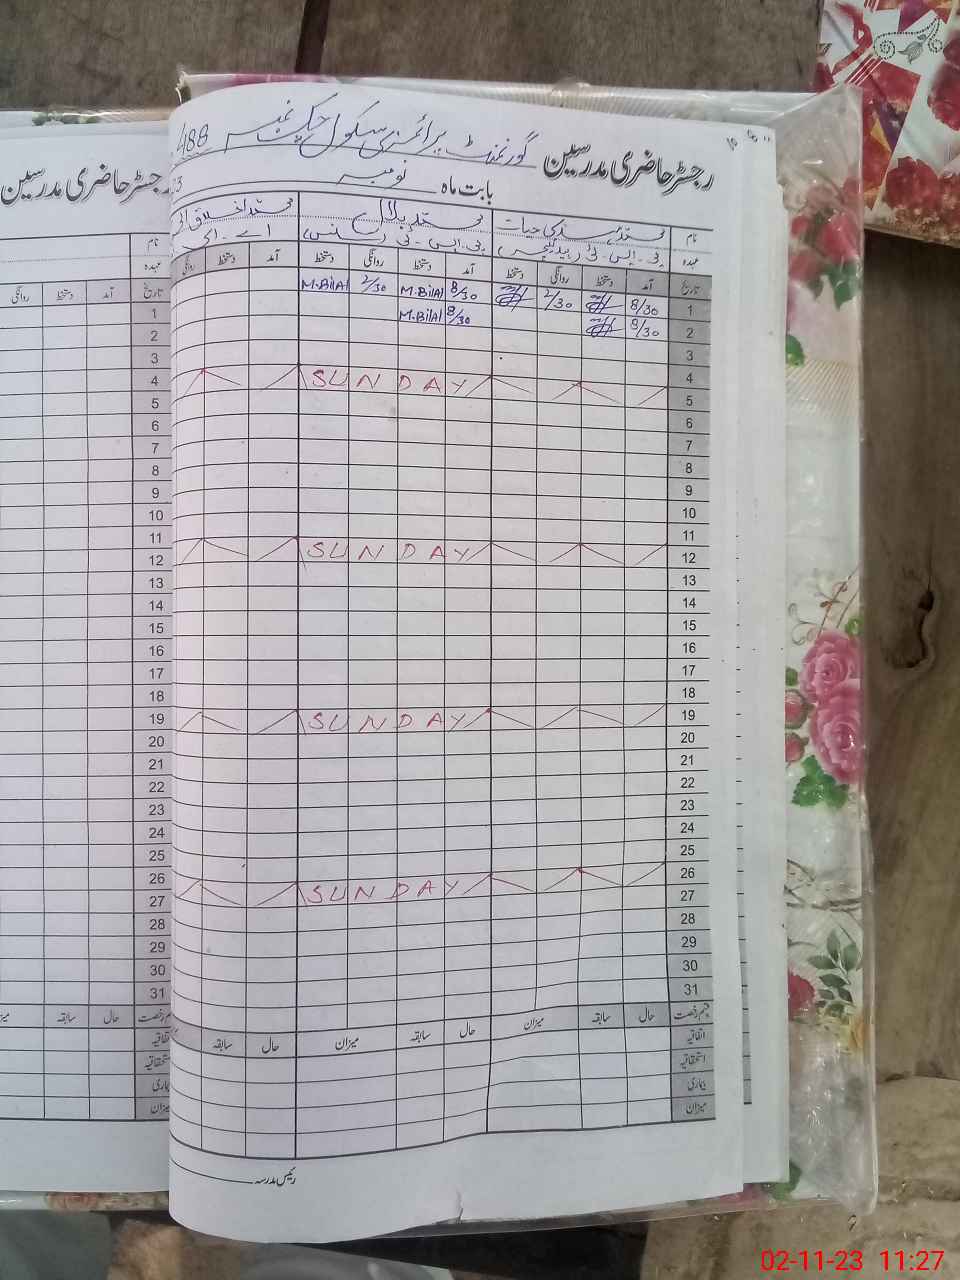 رجسٹر حاضری مدرسین گورنمنٹ پرائمری سکول چک نمبر 488
بابت ماہ نومبر
نام محمد بلال
عہدہ
تاریخ آمد دستخط روانگی دستخط آمد دستخط روانگی دستخط آمد دستخط روانگی
1 8/30 2/30 8/30 M.Bilal 2/30 M.Bilal
2 8/30 8/30 M.Bilal
3
4
5 SUNDAY
6
7
8
9
10
11
12 SUNDAY
13
14
15
16
17
18
19 SUNDAY
20
21
22
23
24
25
26 SUNDAY
27
28
29
30
31
قسم رخصت حال سابقہ میزان حال سابقہ میزان حال سابقہ
اتفاقیہ
استحقاقیہ
بیماری
میزان
رئیس مدرسہ
رجسٹر حاضری مدرسین
نام
عہدہ
تاریخ آمد دستخط روانگی
1
2
3
4
5
6
7
8
9
10
11
12
13
14
15
16
17
18
19
20
21
22
23
24
25
26
27
28
29
30
31
حال سابقہ
02-11-23 11:27